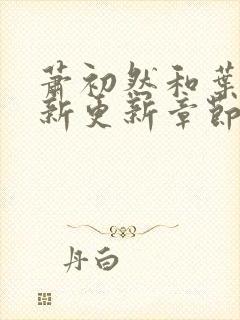 萧初然和叶
新更新章节
丹白